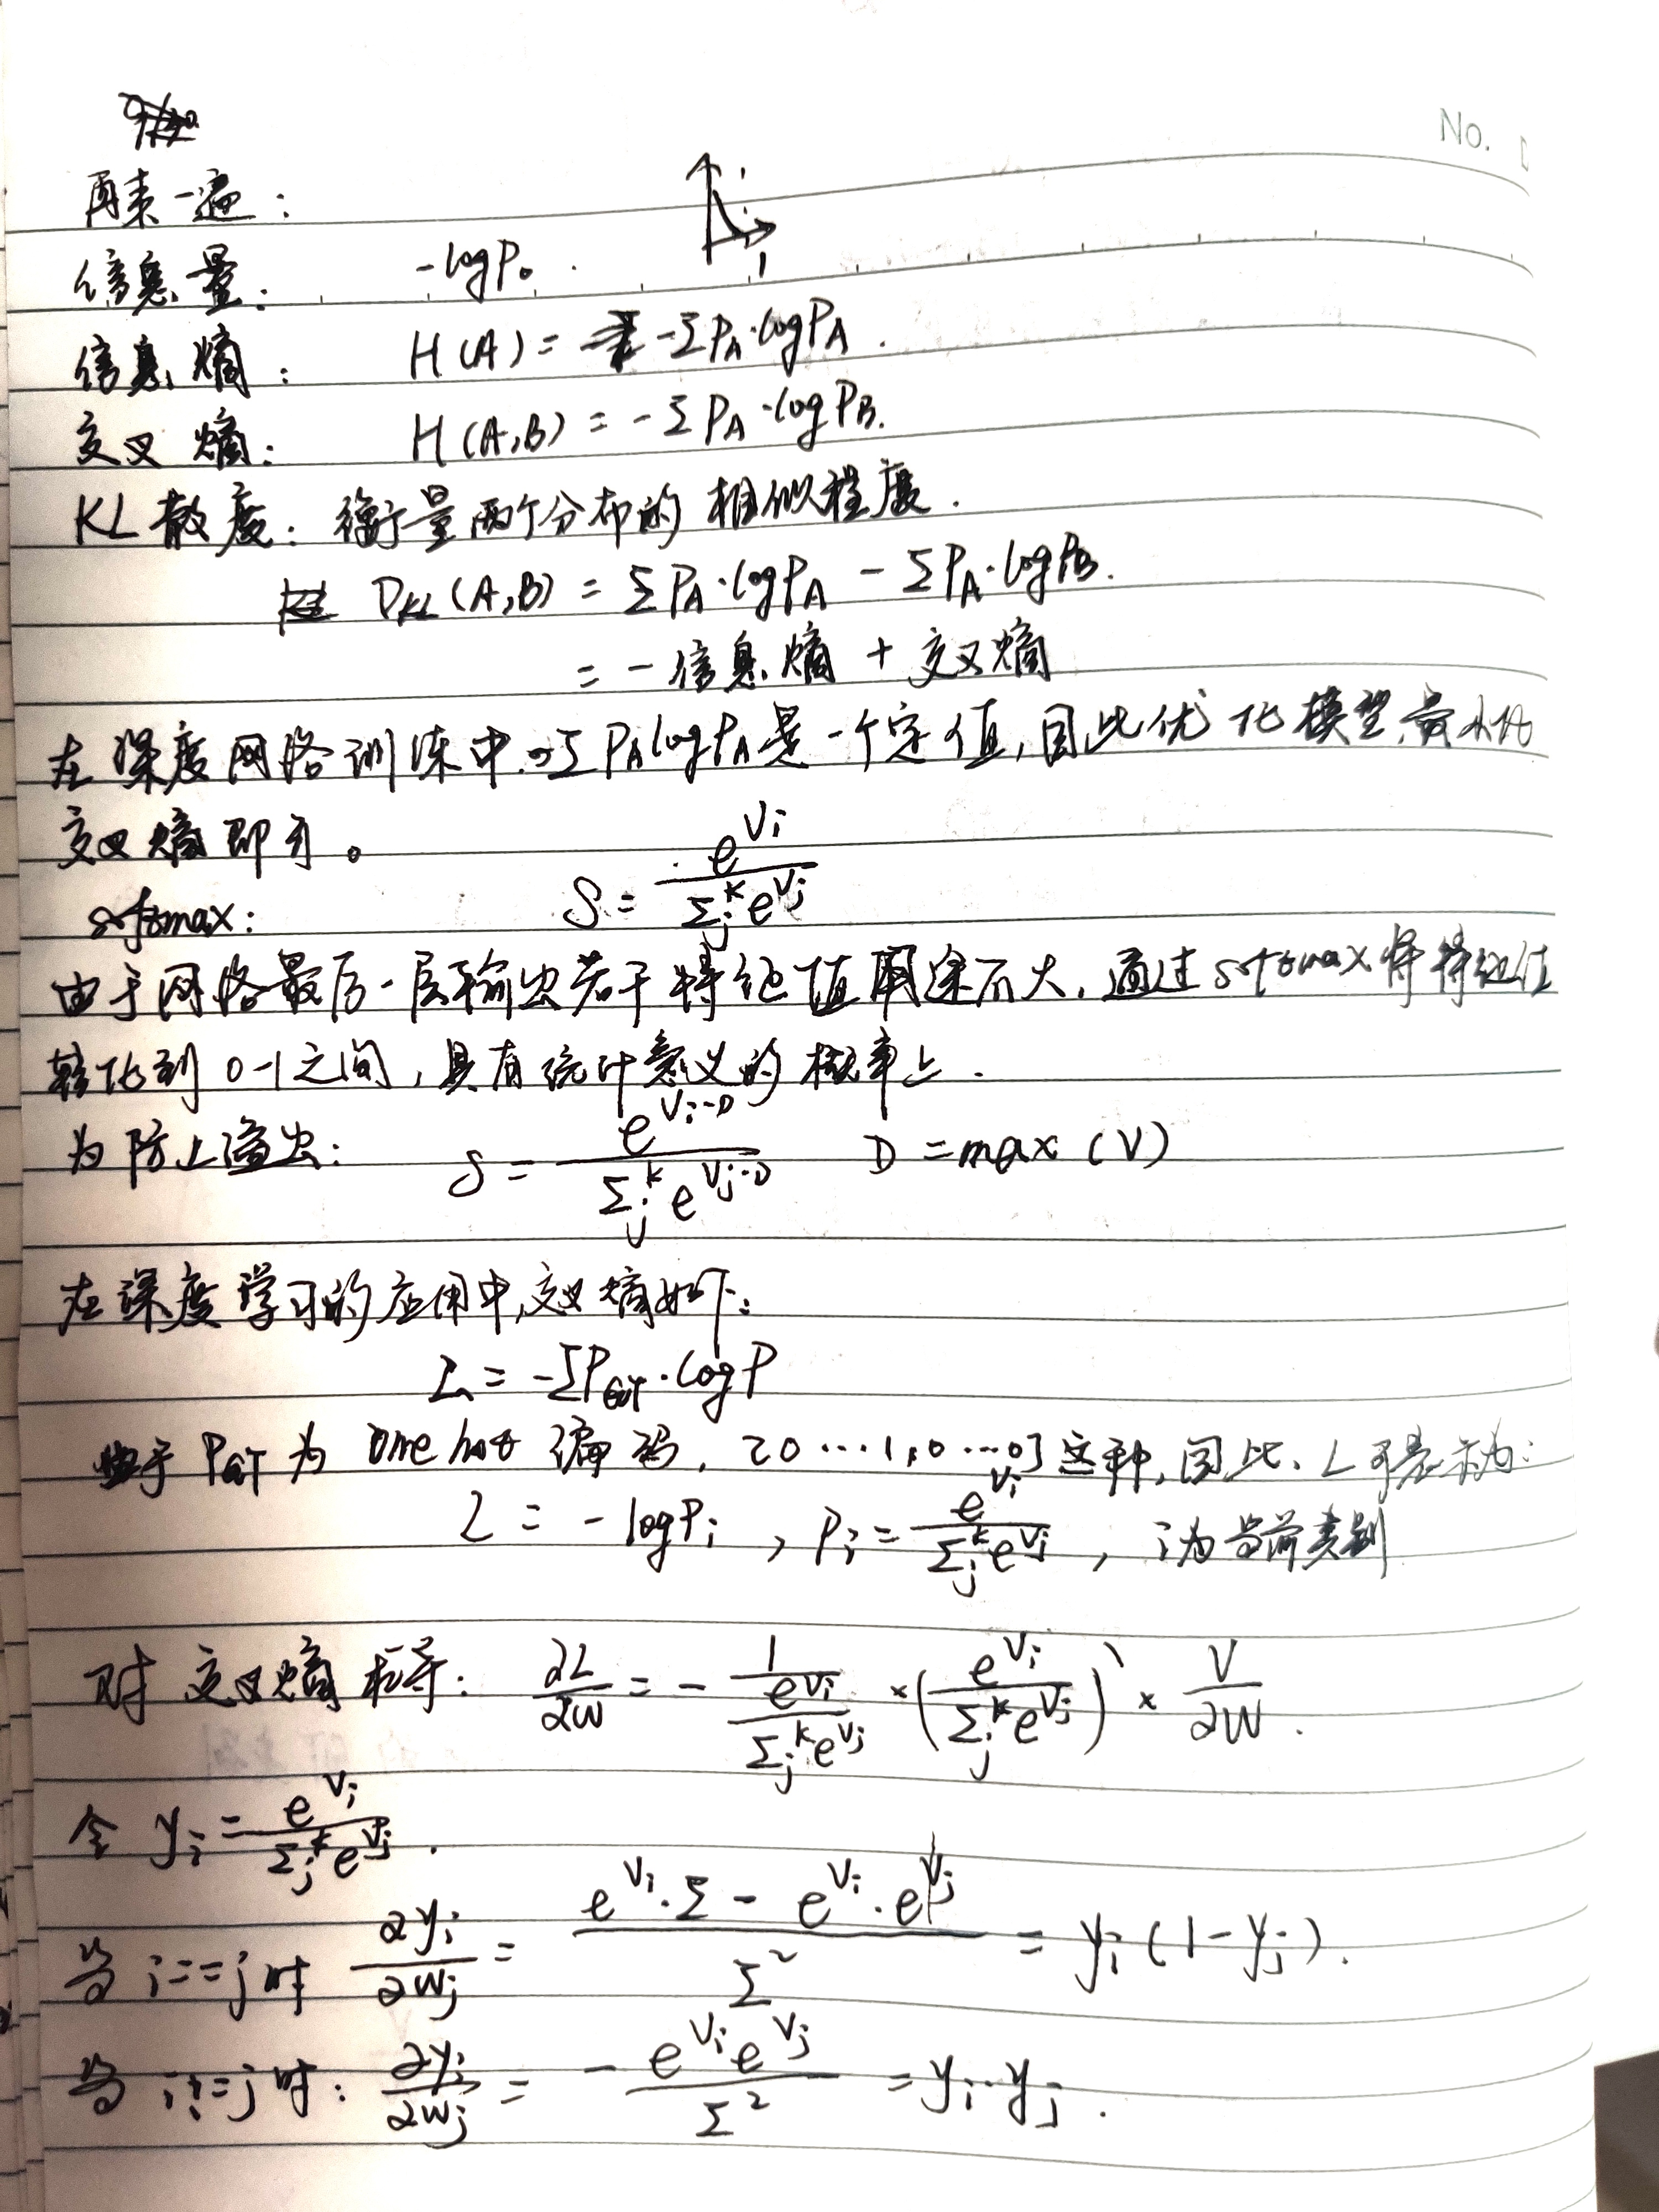 No.
再来一遍：
信息量： -logP。
1
信息熵： H(A) = -ΣP_A·logP_A.
交叉熵： H(A,B) = -ΣP_A·logP_B.
KL散度：衡量两个分布的相似程度.
D_KL(A,B) = ΣP_A·logP_A - ΣP_A·logP_B.
= -信息熵 + 交叉熵
在深度网络训练中,ΣP_AlogP_A是一个定值,因此优化模型最小化
交叉熵即可。
softmax: S = e^{V_i} / Σ_j^k e^{V_j}
由于网络最后一层输出若干特征值用途不大,通过softmax将特征值
转化到0-1之间,具有统计意义的概率上.
为防止溢出: S = e^{V_i-D} / Σ_j^k e^{V_j-D} D = max(V)
在深度学习的应用中,交叉熵如下：
L = -ΣP_GT·logP
由于P_GT为one hot编码, [0...1,0...0]这种,因此, L可表示为：
L = -logP_i , P_i = e^{V_i} / Σ_j^k e^{V_j} , i为当前类别
对交叉熵求导: ∂L/∂W = - 1 / (e^{V_i} / Σ_j^k e^{V_j}) × (e^{V_i} / Σ_j^k e^{V_j})' × V/∂W.
令 y_i = e^{V_i} / Σ_j^k e^{V_j}.
当 i==j时 ∂y_i/∂W_j = (e^{V_i}·Σ - e^{V_i}·e^{V_j}) / Σ² = y_i(1-y_j).
当 i!=j时: ∂y_i/∂W_j = - e^{V_i}e^{V_j} / Σ² = y_i·y_j.